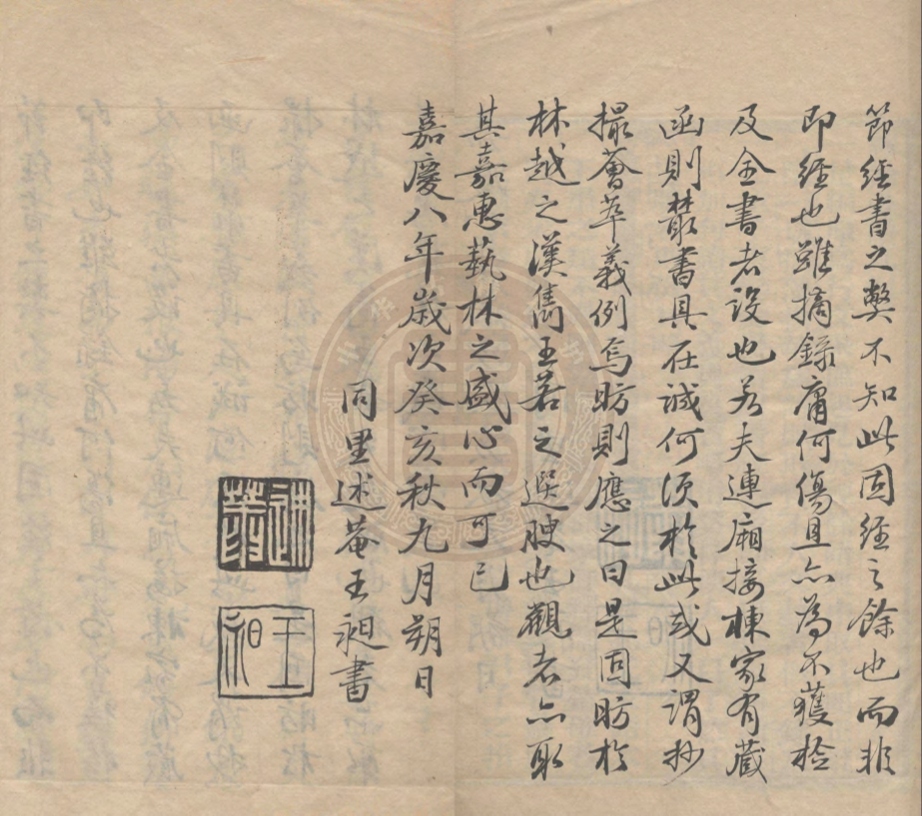 節經書之弊不知此固經之餘也而非
即經也雖摘錄庸何傷且亦為不獲檢
及全書者設也若夫連廂接棟家有藏
函則叢書具在誠何須於此或又謂抄
撮薈萃義例焉昉則應之曰是固昉於
林越之漢雋王若之選腴也觀者亦取
其嘉惠藝林之盛心而可已
嘉慶八年歲次癸亥秋九月朔日
同里述菴王昶書
述菴
王昶